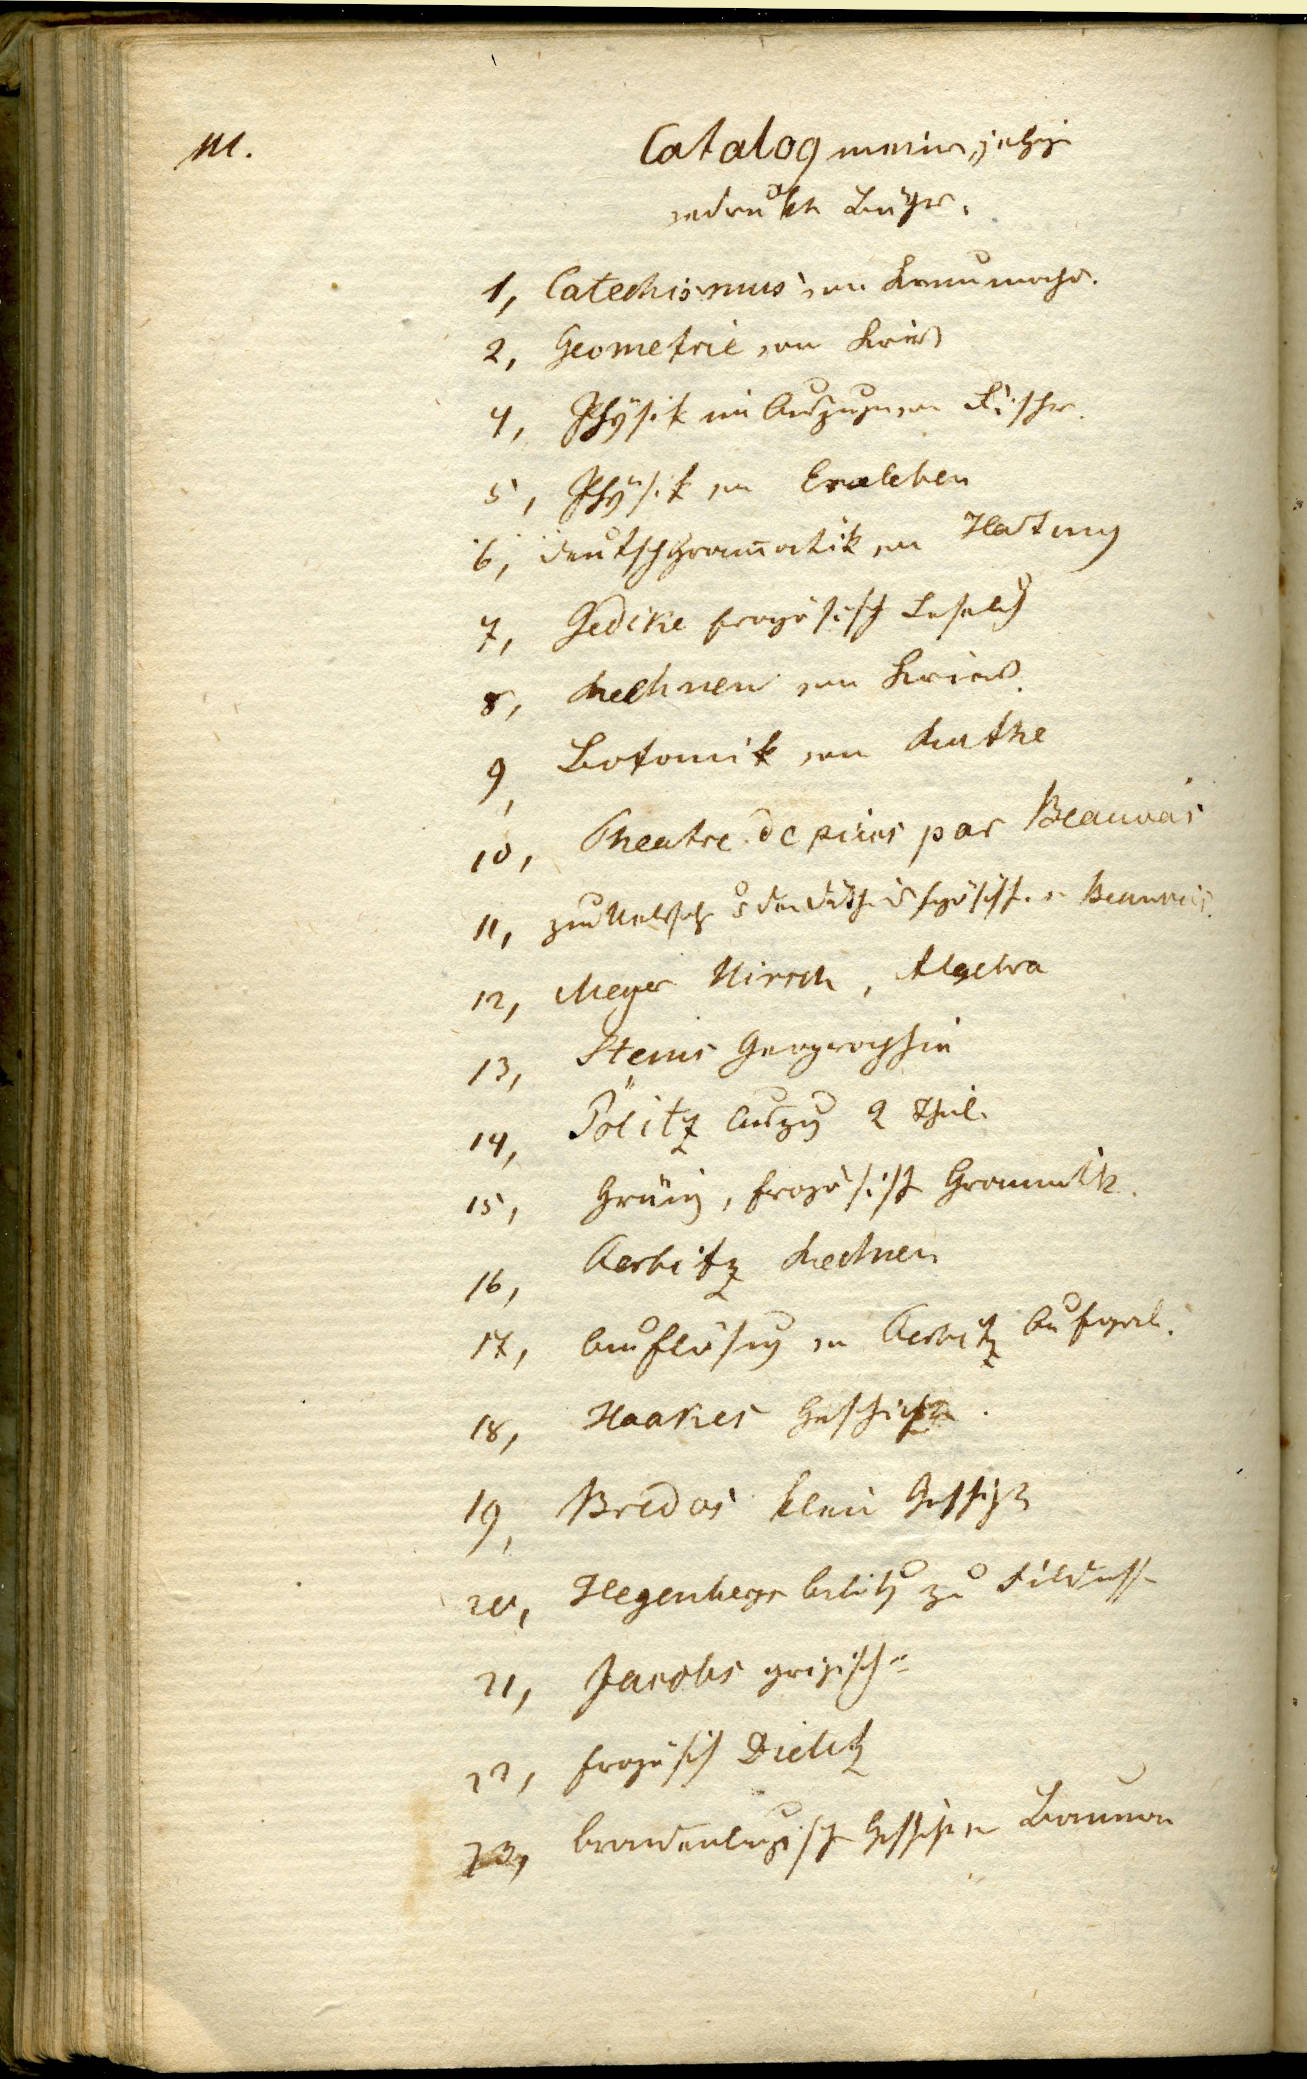 M.
Catalog meiner jetzigen
gedrukten Bücher.
1, Catechismus von
2, Geometrie von Kries
4, Physik im Auszuge von Fischer.
5, Physik von Erxleben
6, deutsch Grammatik von Hartung
7, Gedike französisch Lesebuch
8, Rechnen von Kries.
9, Botanik von Ruthe
10, Theatre de par Beauvais
11, Beauvais.
12, Meyer Hirsch, Algebra
13, Steins Geographie
14, Pölitz Auszug 2 Theil.
15, französisch Grammatik.
16, Aerbitz Rechnen
17, Auflösung von Aerbitz Aufgab.
18, Haakes Geschichte.
19, Bredos klein Geschichte
20, zu
21, Jacobs griechisch
22, französisch Dielitz
23, brandenburgisch Geschichte von